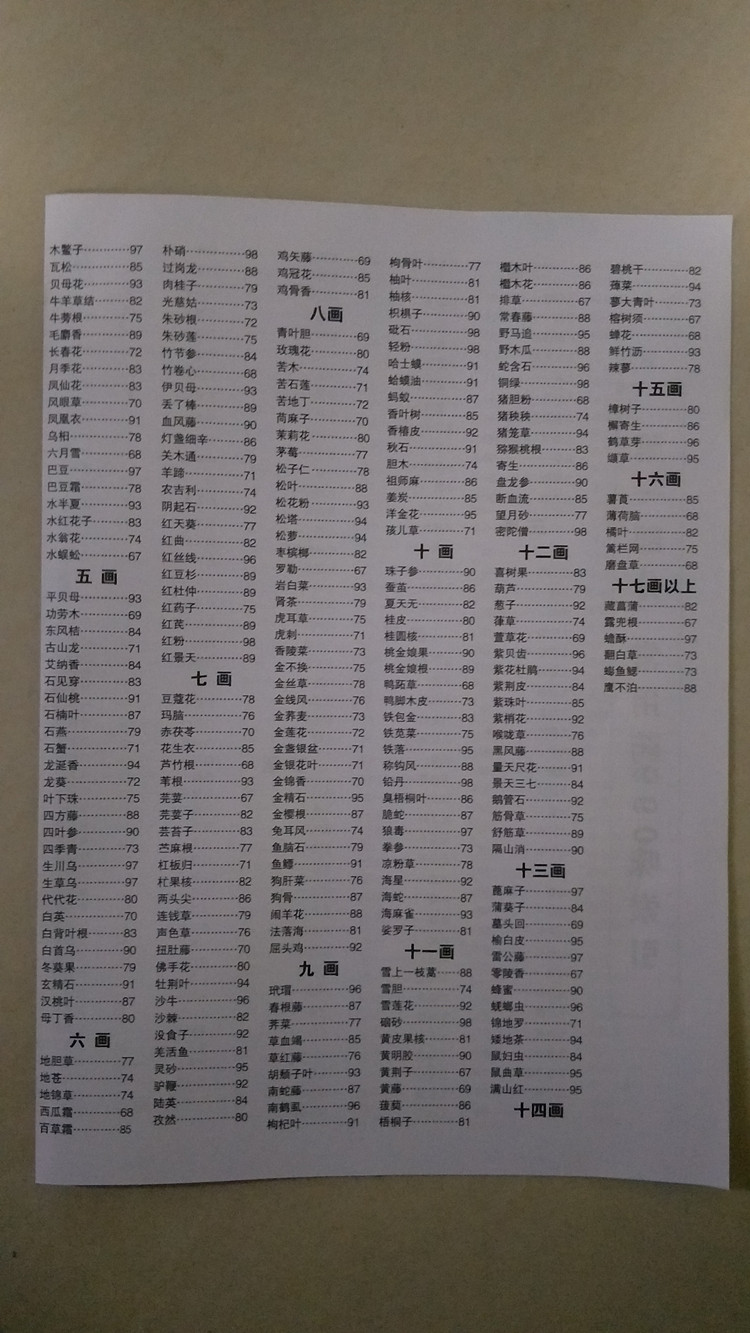 木鳖子…………97
瓦松…………85
贝母花…………93
牛羊草结…………82
牛蒡根…………75
毛麝香…………89
长春花…………72
月季花…………83
凤仙花…………83
凤眼草…………70
凤凰衣…………91
乌桕…………78
六月雪…………68
巴豆…………97
巴豆霜…………78
水半夏…………93
水红花子…………83
水翁花…………74
水蜈蚣…………67
五 画
平贝母…………93
功劳木…………69
东风桔…………84
古山龙…………71
艾纳香…………84
石见穿…………83
石仙桃…………91
石楠叶…………87
石燕…………79
石蟹…………71
龙涎香…………94
龙葵…………72
叶下珠…………75
四方藤…………88
四叶参…………90
四季青…………73
生川乌…………97
生草乌…………97
代代花…………80
白英…………70
白背叶根…………83
白首乌…………90
冬葵果…………79
玄精石…………91
汉桃叶…………87
母丁香…………80
六 画
地胆草…………77
地苍…………74
地锦草…………74
西瓜霜…………68
百草霜…………85
朴硝…………98
过岗龙…………88
肉桂子…………79
光慈姑…………73
朱砂根…………72
朱砂莲…………75
竹节参…………84
竹卷心…………68
伊贝母…………93
丢了棒…………89
血风藤…………90
灯盏细辛…………86
关木通…………79
羊蹄…………71
农吉利…………74
阴起石…………92
红天葵…………77
红曲…………82
红丝线…………96
红豆杉…………89
红杜仲…………89
红药子…………75
红芪…………89
红粉…………98
红景天…………89
七 画
豆蔻花…………78
玛脑…………76
赤茯苓…………70
花生衣…………85
芦竹根…………68
苇根…………93
芫荽…………67
芫荽子…………82
芸苔子…………83
苎麻根…………77
杠板归…………71
杧果核…………82
两头尖…………86
连钱草…………79
声色草…………76
扭肚藤…………70
佛手花…………80
牡荆叶…………94
沙牛…………96
沙棘…………82
没食子…………92
羌活鱼…………81
灵砂…………95
驴鞭…………92
陆英…………84
孜然…………80
鸡矢藤…………69
鸡冠花…………85
鸡骨香…………81
八画
青叶胆…………69
玫瑰花…………80
苦木…………74
苦石莲…………71
苦地丁…………72
苘麻子…………70
茉莉花…………80
茅莓…………77
松子仁…………78
松叶…………88
松花粉…………93
松塔…………94
松萝…………94
枣槟榔…………82
罗勒…………67
岩白菜…………93
肾茶…………79
虎耳草…………75
虎刺…………71
香陵菜…………73
金不换…………75
金丝草…………78
金线风…………76
金荞麦…………73
金莲花…………72
金盏银盆…………71
金银花叶…………71
金锦香…………70
金精石…………95
金樱根…………87
兔耳风…………74
鱼脑石…………79
鱼鳔…………91
狗肝菜…………76
狗骨…………87
闹羊花…………88
法落海…………81
屈头鸡…………92
九 画
玳瑁…………96
春根藤…………87
荠菜…………77
草血竭…………85
草红藤…………76
胡颓子叶…………93
南蛇藤…………87
南鹤虱…………96
枸杞叶…………91
枸骨叶…………77
柚叶…………81
柚核…………81
枳椇子…………90
砒石…………98
轻粉…………98
哈士蟆…………91
蛤蟆油…………91
蚂蚁…………87
香叶树…………85
香椿皮…………92
秋石…………91
胆木…………74
祖师麻…………86
姜炭…………85
洋金花…………95
孩儿草…………71
十 画
珠子参…………90
蚕茧…………86
夏天无…………82
桂皮…………80
桂圆核…………81
桃金娘果…………90
桃金娘根…………89
鸭跖草…………68
鸭脚木皮…………73
铁包金…………83
铁苋菜…………75
铁落…………95
称钩风…………88
铅丹…………98
臭梧桐叶…………86
脆蛇…………87
狼毒…………97
拳参…………73
凉粉草…………78
海星…………92
海蛇…………87
海麻雀…………93
娑罗子…………81
十一画
雪上一枝蒿……88
雪胆…………74
雪莲花…………92
硇砂…………98
黄皮果核…………81
黄明胶…………90
黄荆子…………67
黄藤…………69
菝葜…………86
梧桐子…………81
檵木叶…………86
檵木花…………86
排草…………67
常春藤…………88
野马追…………95
野木瓜…………88
蛇含石…………96
铜绿…………98
猪胆粉…………68
猪秧秧…………74
猪笼草…………94
猕猴桃根…………83
寄生…………86
盘龙参…………90
断血流…………85
望月砂…………77
密陀僧…………98
十二画
喜树果…………83
葫芦…………79
葱子…………92
葎草…………74
萱草花…………69
紫贝齿…………96
紫花杜鹃…………94
紫荆皮…………84
紫珠叶…………85
紫梢花…………92
喉咙草…………76
黑风藤…………88
量天尺花…………91
景天三七…………84
鹅管石…………92
筋骨草…………75
舒筋草…………89
隔山消…………90
十三画
蓖麻子…………97
蒲葵子…………84
墓头回…………69
榆白皮…………95
雷公藤…………97
零陵香…………67
蜂蜜…………90
蜣螂虫…………96
锦地罗…………71
矮地茶…………94
鼠妇虫…………84
鼠曲草…………95
满山红…………95
十四画
碧桃干…………82
蔊菜…………94
蓼大青叶…………73
榕树须…………67
蝉花…………68
鲜竹沥…………93
辣蓼…………78
十五画
樟树子…………80
槲寄生…………86
鹤草芽…………96
缬草…………95
十六画
薯莨…………85
薄荷脑…………68
橘叶…………82
篱栏网…………75
磨盘草…………68
十七画以上
藏菖蒲…………82
露兜根…………67
蟾酥…………97
翻白草…………73
鳑鱼鳃…………73
鹰不泊…………88